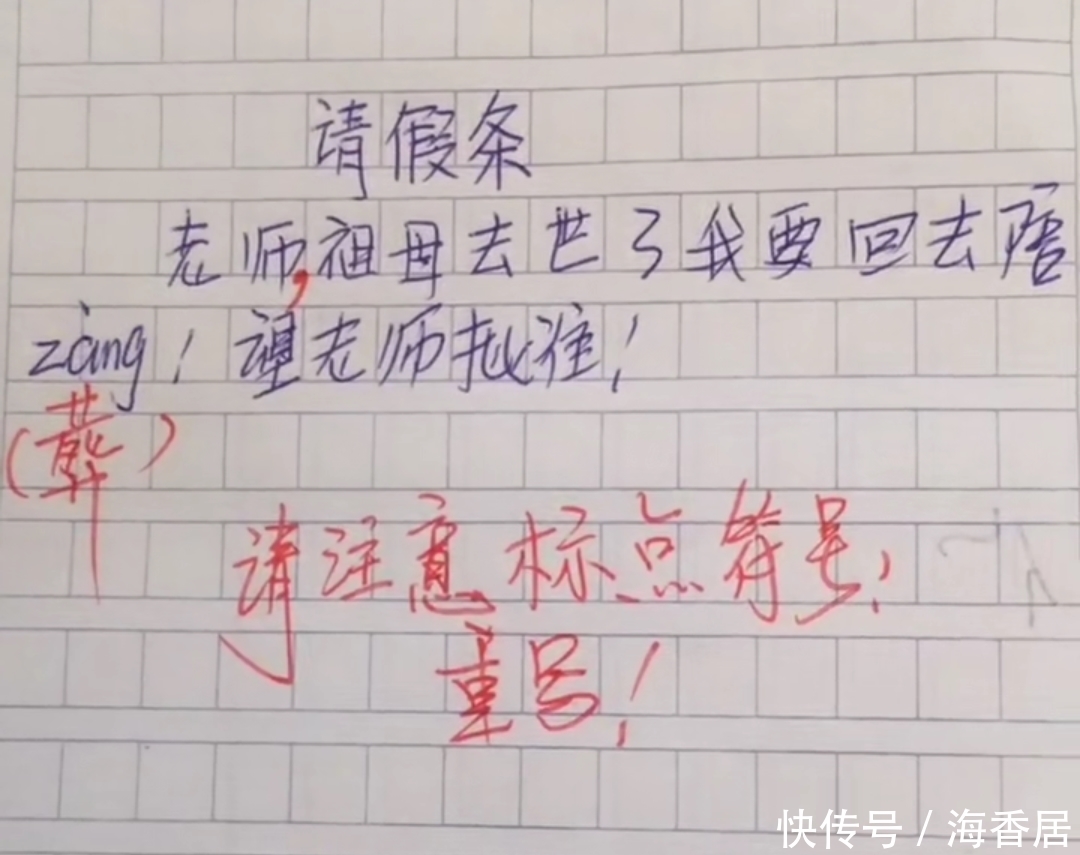 请假条
老师,祖母去世了我要回去陪
zàng!望老师批准!
(葬)
请注意标点符号!
重写!
快传号 / 海香居